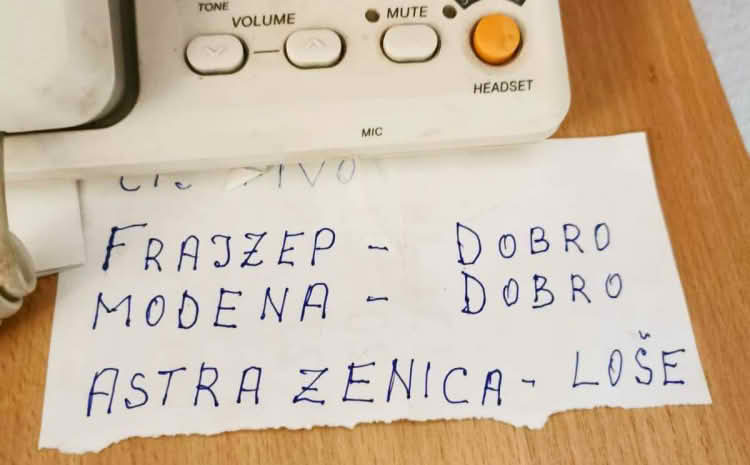 TONE
VOLUME
MUTE
HEADSET
MIC
FRAJZEP - DOBRO
MODENA - DOBRO
ASTRA ZENICA - LOŠE